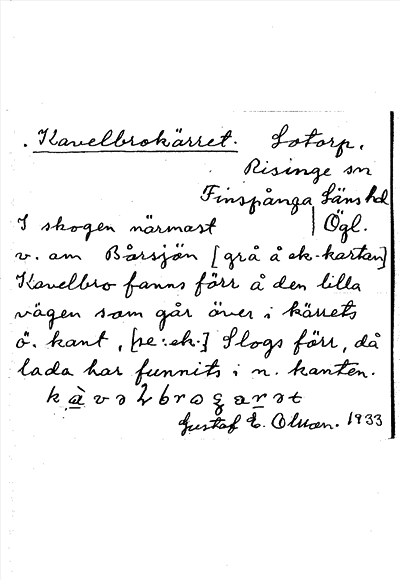 Kavelbrokärret. Sotorp.
Risinge sn
Finspånga Läns hd
I skogen närmast Ögl.
v. om Bårsjön [grå å ek-kartan]
Kavelbro fanns förr å den lilla
vägen som går över i kärrets
ö. kant, [se: ek.] Slogs förr, då
lada har funnits i n. kanten.
Gustaf E. Olsson. 1933